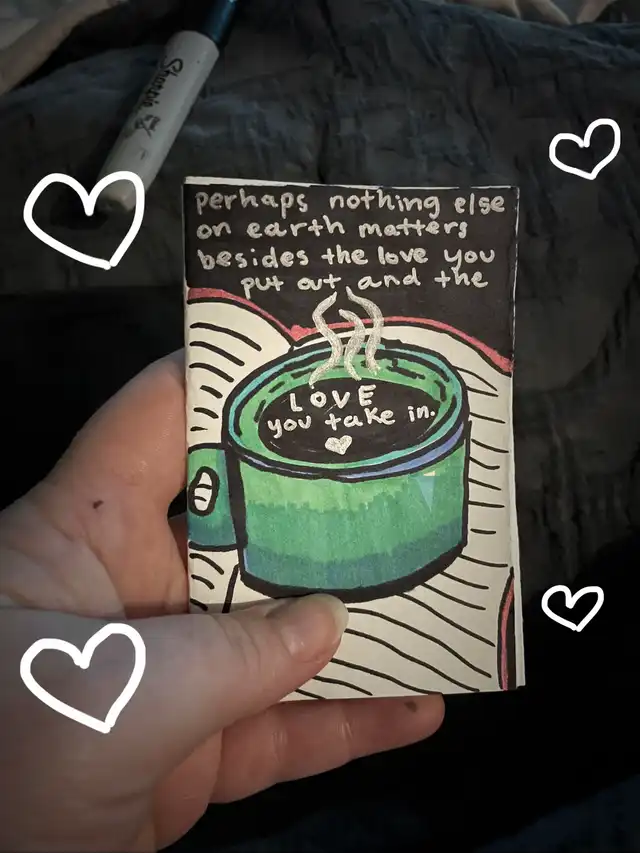 Sharpie
perhaps nothing else
on earth matters
besides the love you
put out and the
LOVE
you take in.